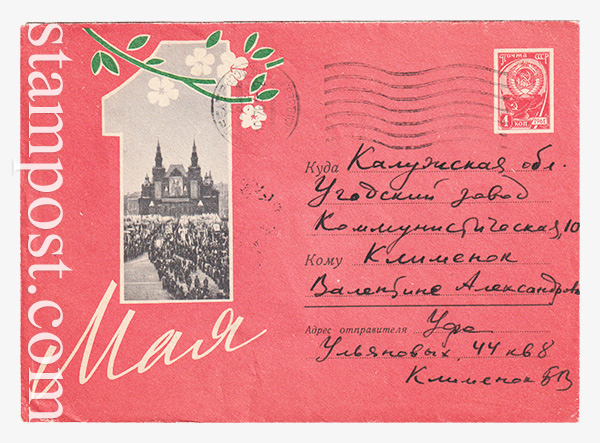 stampost.com
1
Мая
Почта СССР
4 коп 1961
Куда Калужская обл.
Угодский завод
Коммунистическая, 10
Кому Клименок
Валентине Александровне
Адрес отправителя Уфа
Ульяновых, 44 кв 8
Клименок БВ